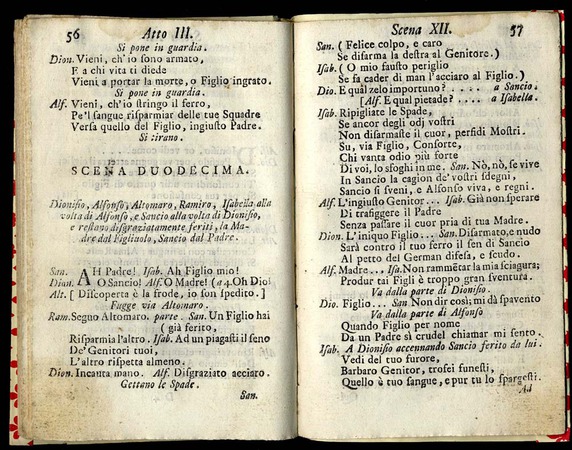 56 Atto III.
Si pone in guardia.
Dion. Vieni, ch'io sono armato,
E a chi vita ti diede
Vieni a portar la morte, o Figlio ingrato.
Si pone in guardia.
Alf. Vieni, ch'io stringo il ferro,
Pe'l sangue risparmiar delle tue Squadre
Versa quello del Figlio, ingiusto Padre.
Si tirano.
SCENA DUODECIMA.
Dionisio, Alfonso, Altomaro, Ramiro, Isabella alla
volta di Alfonso, e Sancio alla volta di Dionisio,
e restano disgraziatamente feriti, la Ma-
dre dal Figliuolo, Sancio dal Padre.
San. AH Padre! Isab. Ah Figlio mio!
Dion. O Sancio! Alf. O Madre! (a 4. Oh Dio!
Alt. [ Discoperta è la frode, io son spedito. ]
Fugge via Altomaro.
Ram. Seguo Altomaro. parte. San. Un Figlio hai
( già ferito,
Risparmia l'altro. Isab. Ad un piagasti il seno
De' Genitori tuoi,
L'altro rispetta almeno.
Dion. Incauta mano. Alf. Disgraziato acciaro.
Gettano le Spade.
San.
Scena XII. 57
San. ( Felice colpo, e caro
Se disarma la destra al Genitore. )
Isab. ( O mio fausto periglio
Se fa cader di man l'acciaro al Figlio. )
Dio. E qual zelo importuno? .... a Sancio.
[Alf. E qual pietade? .... a Isabella.
Isab. Ripigliate le Spade,
Se ancor degli odj vostri
Non disarmaste il cuor, perfidi Mostri.
Su, via, Figlio, Consorte,
Chi vanta odio più forte
Di voi, lo sfoghi in me. San. Nò, nò, se vive
In Sancio la cagion de' vostri sdegni,
Sancio si sveni, e Alfonso viva, e regni.
Alf. L'ingiusto Genitor... Isab. Già non sperare
Di trafiggere il Padre
Senza passare il cuor pria di tua Madre.
Dion. L' iniquo Figlio... San. Disarmato, e nudo
Sarà contro il tuo ferro il sen di Sancio
Al petto del German difesa, e scudo.
Alf. Madre... Isa. Non rammētar la mia sciagura;
Produr tai Figli è troppo gran sventura.
Va dalla parte di Dionisio.
Dio. Figlio... San Non dir così; mi dà spavento
Va dalla parte di Alfonso
Quando Figlio per nome
Da un Padre sì crudel chiamar mi sento.
Isab. A Dionisio accennando Sancio ferito da lui.
Vedi del tuo furore,
Barbaro Genitor, trofei funesti,
Quello è tuo sangue, e pur tu lo spargesti.
Ad